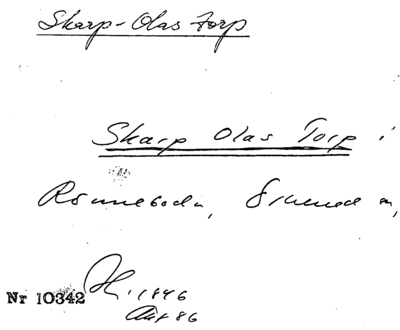 Skarp-Olas Torp
Skarp Olas Torp i
Rönneboda,
Nr 10342 H. 1846
86